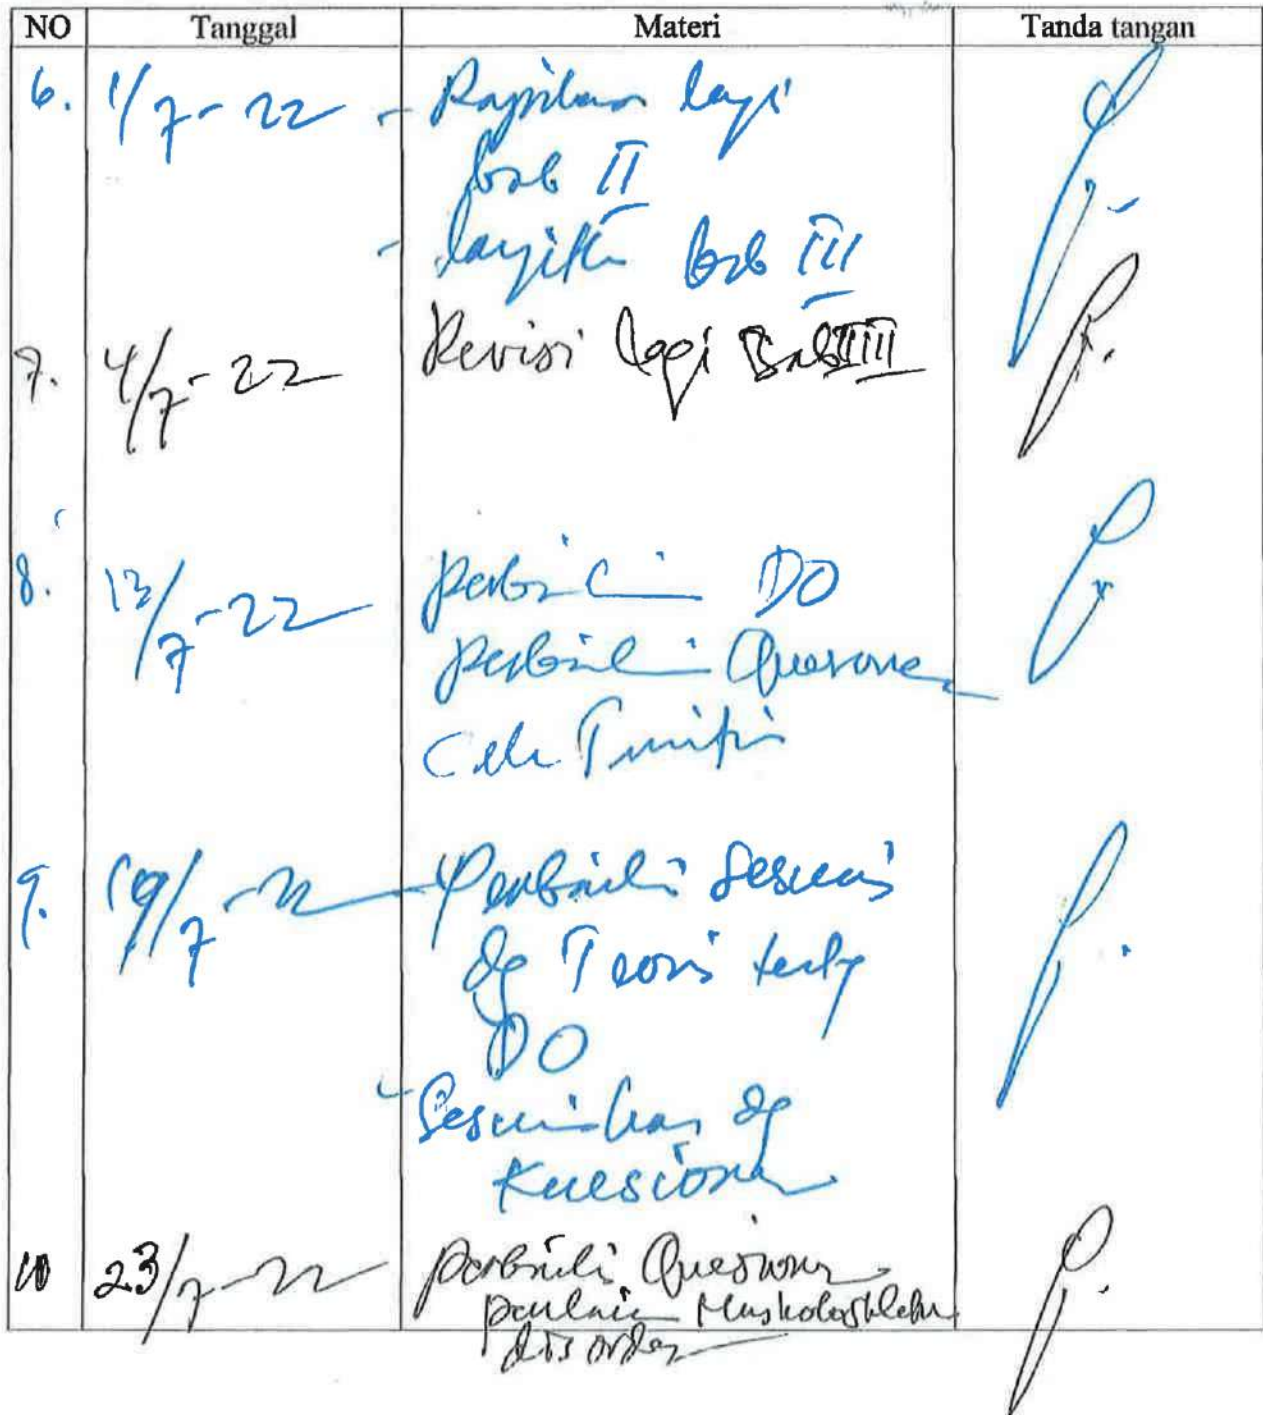 NO Tanggal Materi Tanda tangan
6. 1/7-22 - Rapikan lagi
bab II
- lanjutkan bab III
7. 4/7-22 Revisi lagi Bab III
8. 13/7-22 perbaiki DO
perbaiki Quesioner
Cek
9. 19/7-22 Perbaiki sesuai
dg Teori
DO
- Sesuaikan dg
Kuesioner
10 23/7-22 perbaiki Quesioner
disorder